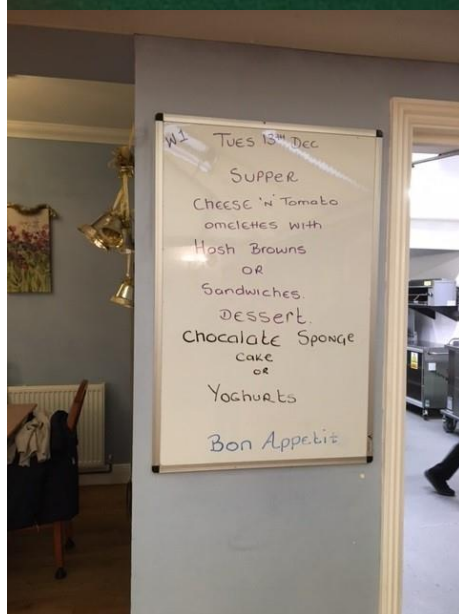 W1
TUES 13TH DEC
SUPPER
CHEESE 'N' TOMATO
OMELETTES WITH
HASH BROWNS
OR
SANDWICHES.
DESSERT.
CHOCOLATE SPONGE
CAKE
OR
YOGHURTS
BON APPETIT